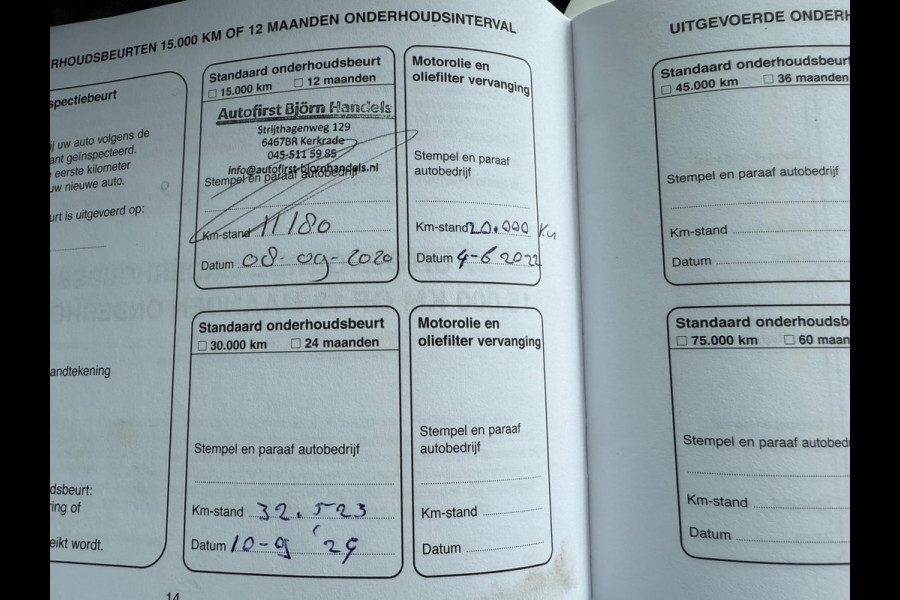 RHOUDSBEURTEN 15.000 KM OF 12 MAANDEN ONDERHOUDSINTERVAL
spectiebeurt
ij uw auto volgens de
ant geïnspecteerd.
eerste kilometer
uw nieuwe auto.
urt is uitgevoerd op:
andtekening
dsbeurt:
ring of
eikt wordt.
Standaard onderhoudsbeurt
□ 15.000 km □ 12 maanden
Autofirst Björn Handels
Strijthagenweg 129
6467BR Kerkrade
045-511 59 85
info@autofirst-bjornhandels.nl
Stempel en paraaf autobedrijf
Km-stand 11180
Datum 08-09-2020
Motorolie en
oliefilter vervanging
Stempel en paraaf
autobedrijf
Km-stand 20.000 Km
Datum 4-6 2022
Standaard onderhoudsbeurt
□ 30.000 km □ 24 maanden
Stempel en paraaf autobedrijf
Km-stand 32.523
Datum 10-9 '24
Motorolie en
oliefilter vervanging
Stempel en paraaf
autobedrijf
Km-stand
Datum
14
UITGEVOERDE ONDERH
Standaard onderhoudsbeurt
□ 45.000 km □ 36 maanden
Stempel en paraaf autobedrijf
Km-stand
Datum
Standaard onderhoudsb
□ 75.000 km □ 60 maan
Stempel en paraaf autobedr
Km-stand
Datum